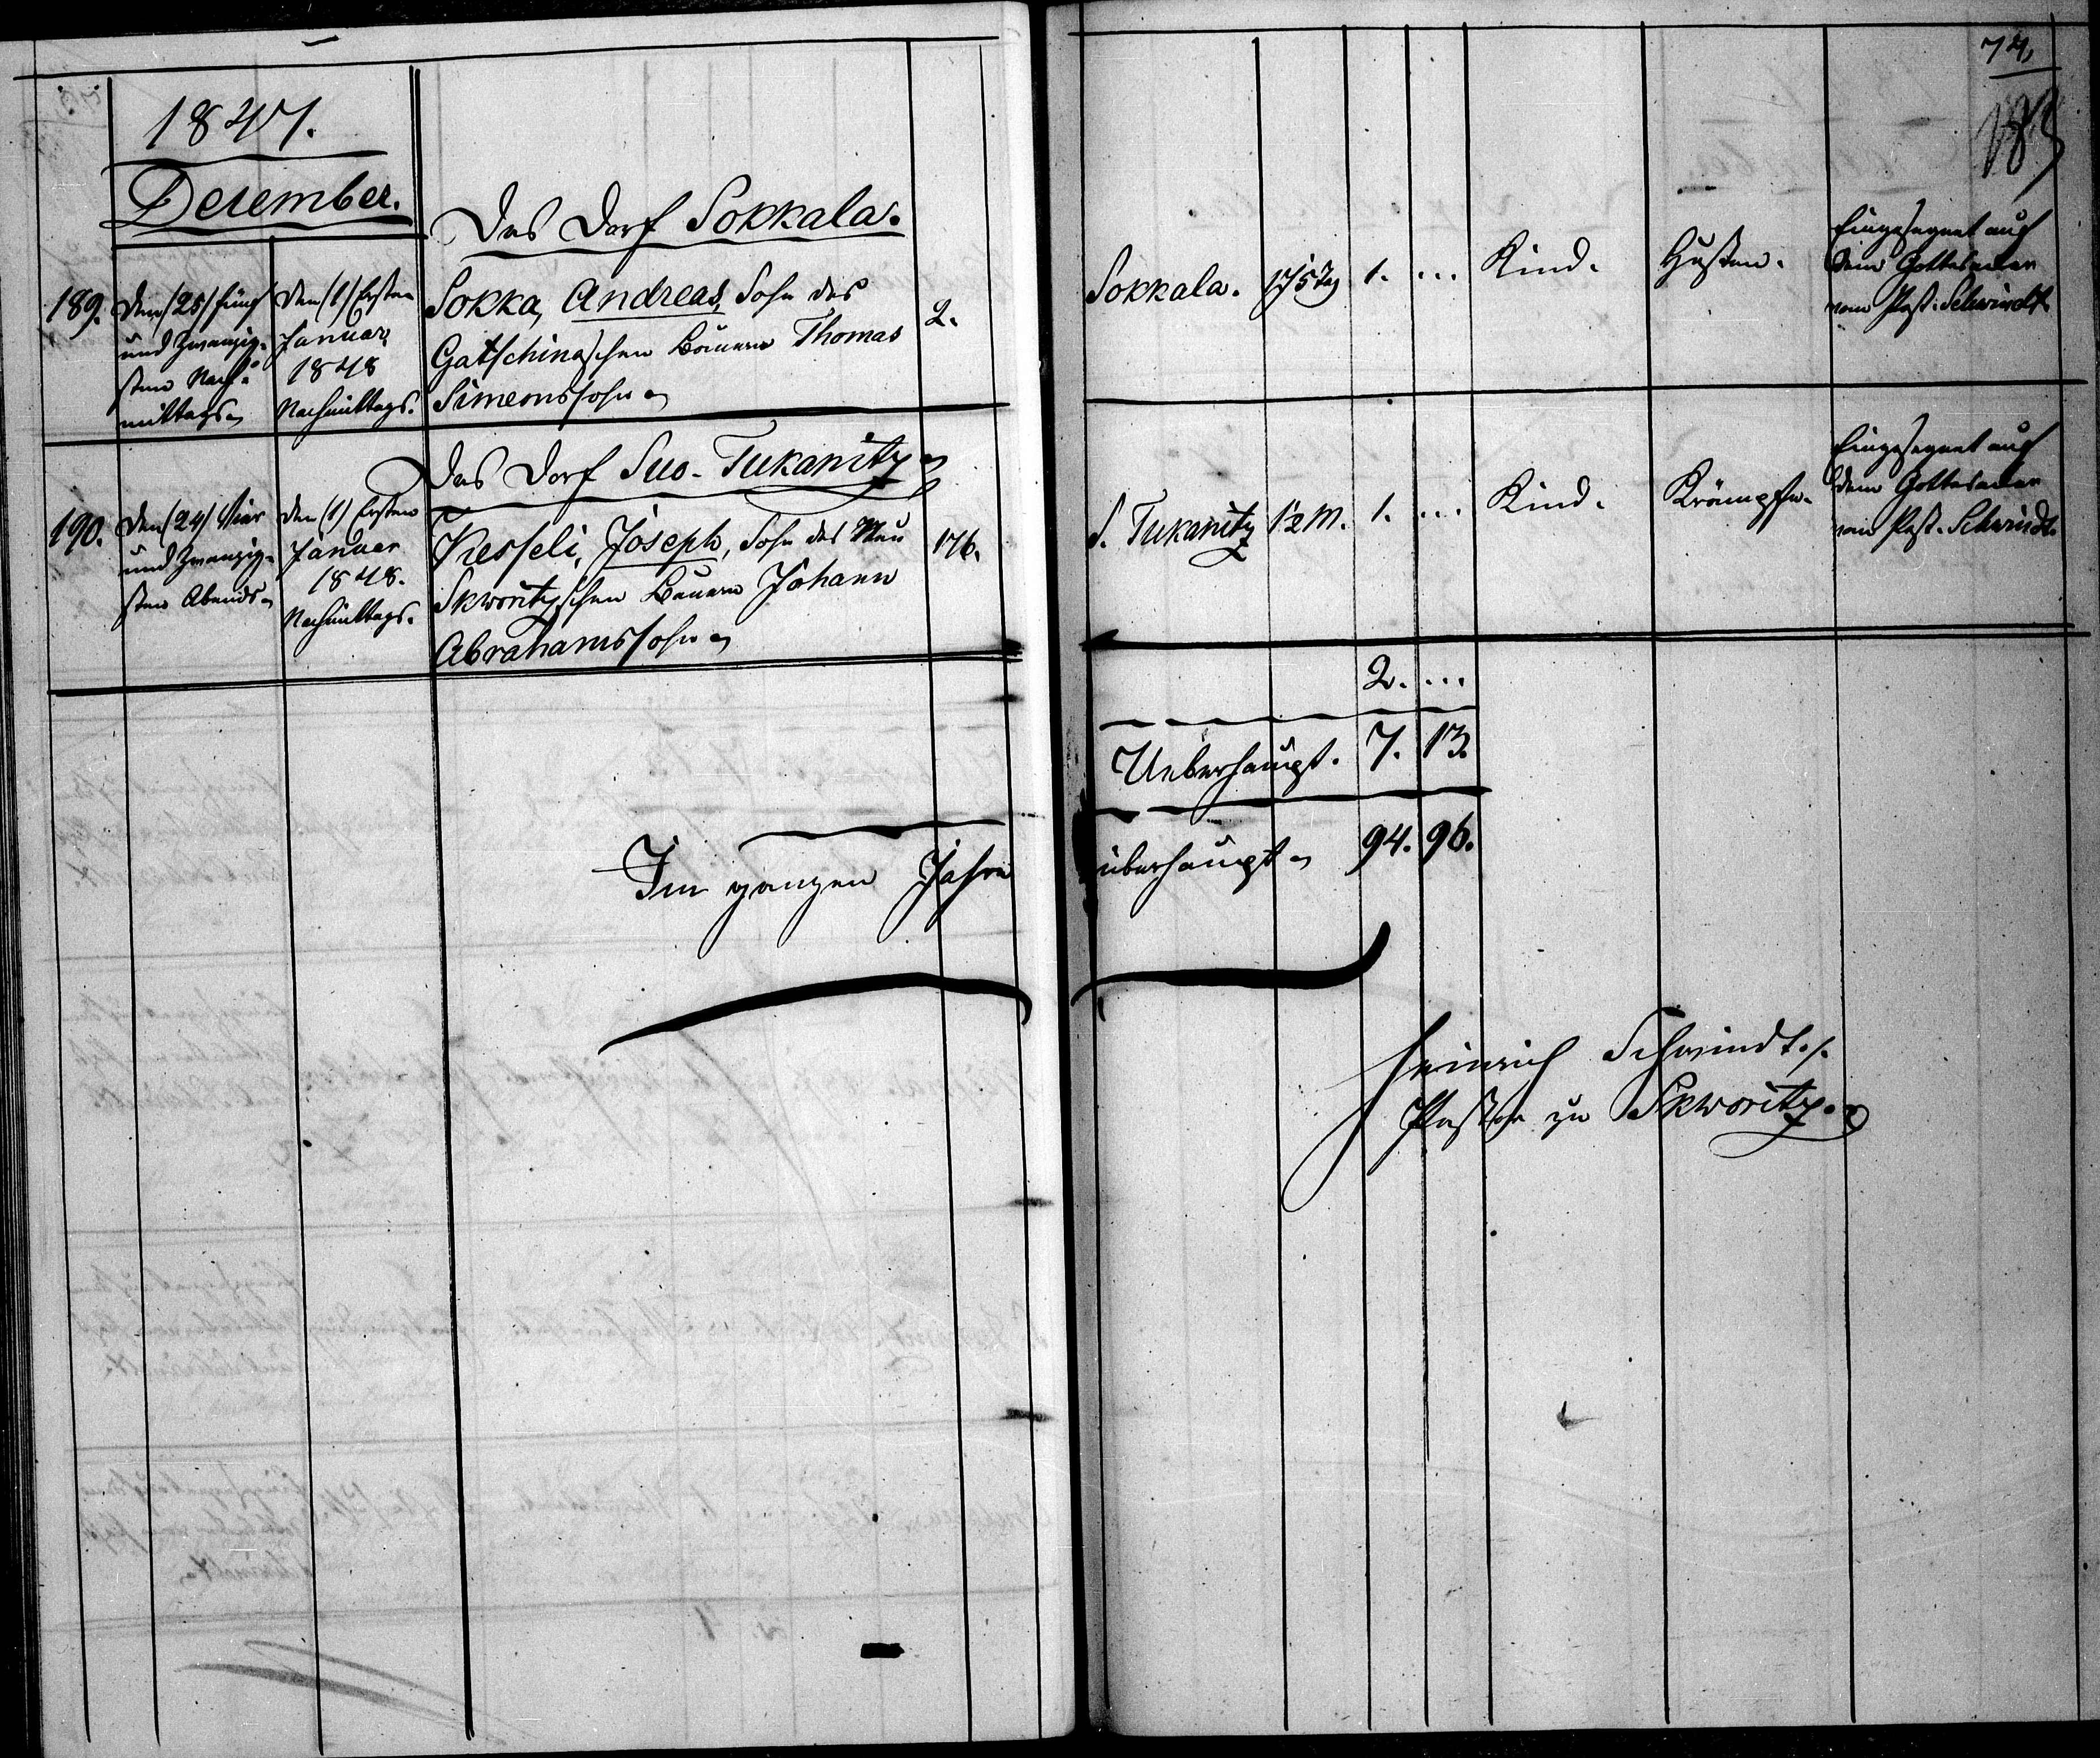 1847.
December.
Das Dorf Sokkala.
189. Den (25) fünf
und zwanzig-
sten Nach-
mittags
Den (1) Ersten
Januar
1848
Nachmittags.
Sokka, Andreas, Sohn des
Gatschinaschen Bauern Thomas
Simeonssohn
2.
Das Dorf Suo-Tukanitz
190. Den (24) Vier
und zwanzig-
sten Abends
Den (1) Ersten
Januar
1848.
Nachmittags.
Kesseli, Joseph, Sohn des Neu
Skworitzschen Bauern Johann
Abrahamssohn
176.
Im ganzen Jahre
74,
Sokkala. 1. ... Kind. Husten.
Eingesegnet auf
dem Gottesacker
vom Past. Schwindt.
S. Tukanitz 1/2 M. 1. ... Kind. Krämpfe.
Eingesegnet auf
dem Gottesacker
vom Past. Schwindt.
2. ...
Ueberhaupt. 7. 13.
überhaupt 94. 96.
Heinrich Schwindt.
Pastor zu Skworitz.